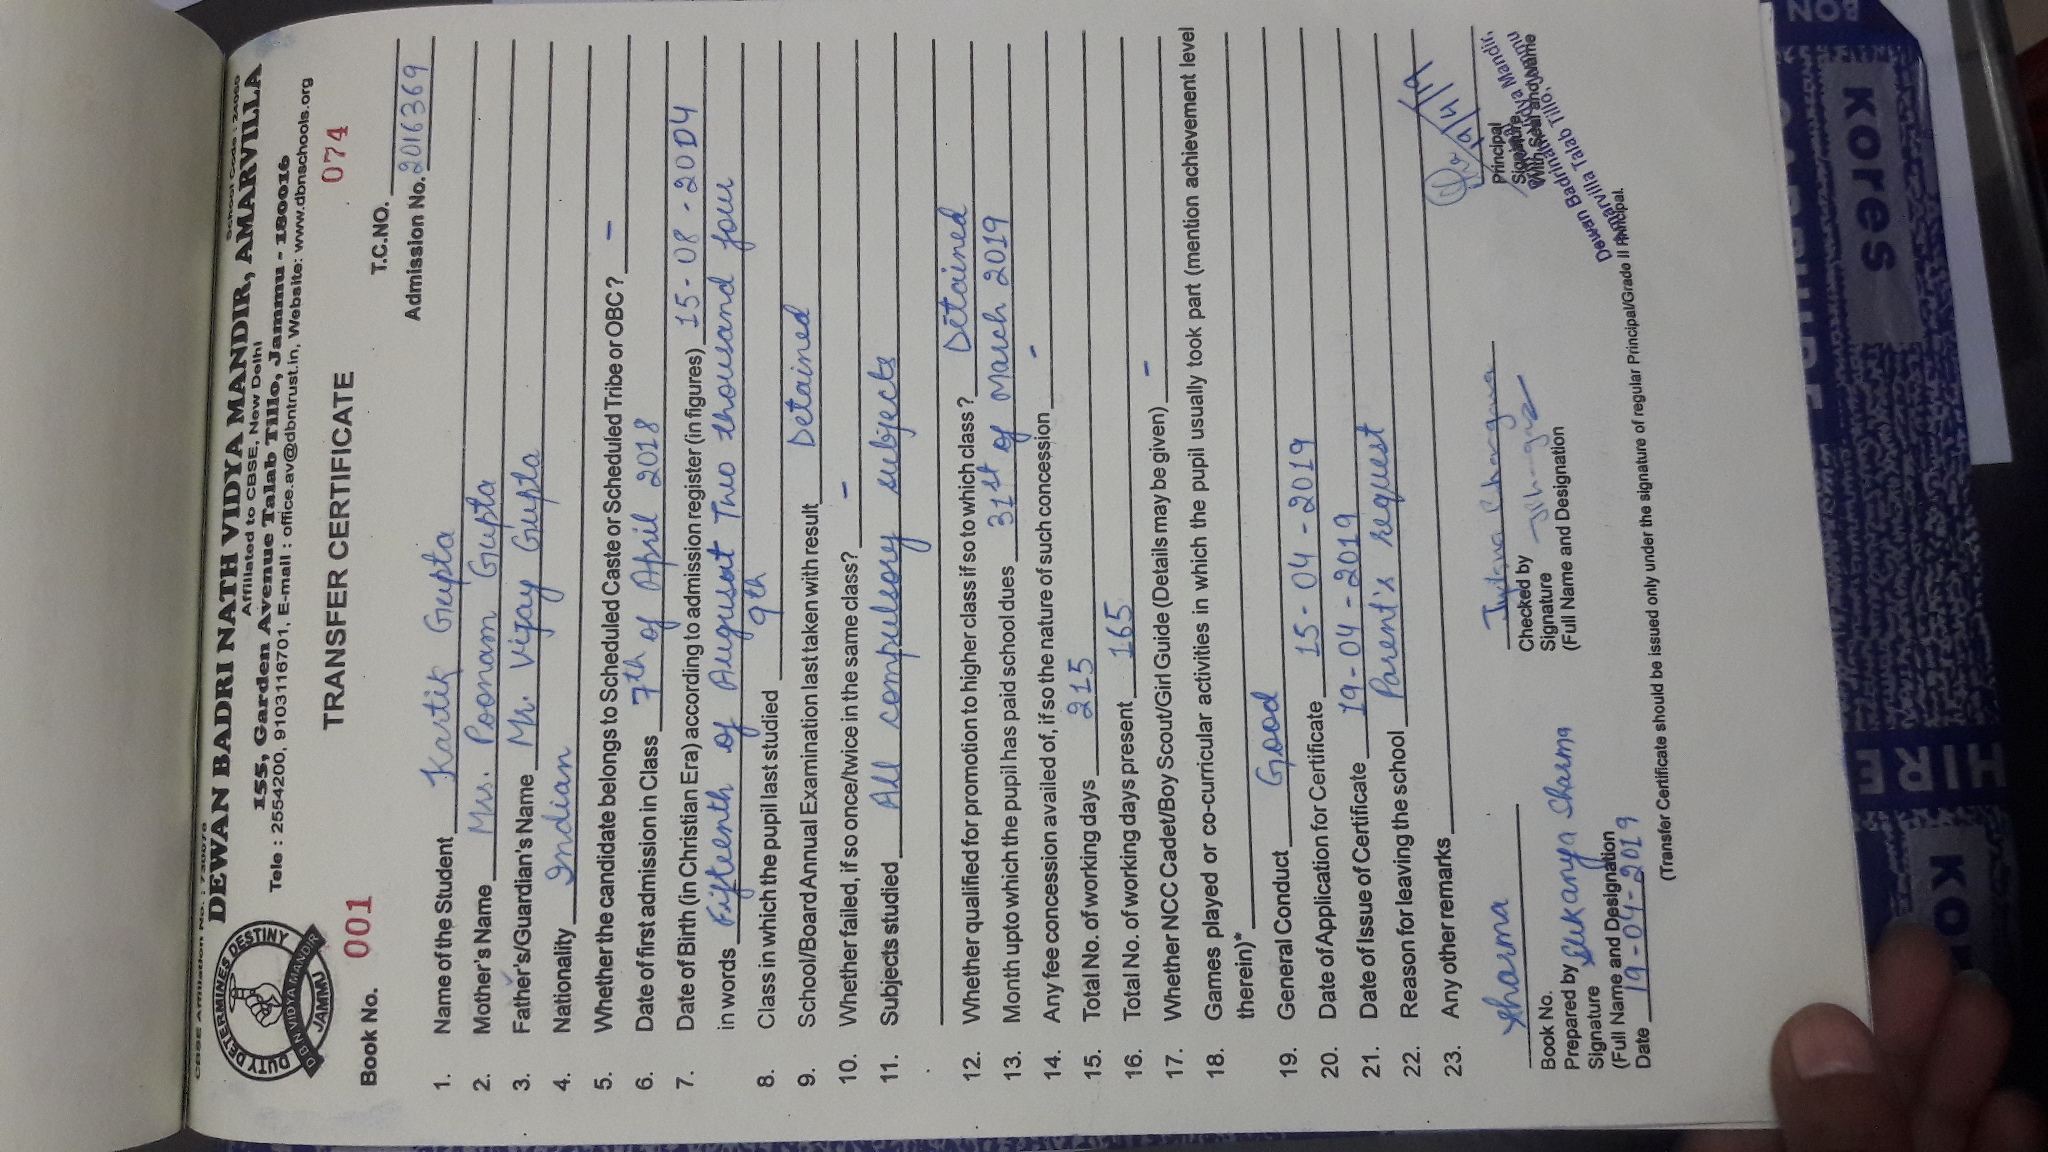 CBSE Affiliation No.: 730078 School Code: 24066
DEWAN BADRI NATH VIDYA MANDIR, AMARVILLA
Affiliated to CBSE, New Delhi
155, Garden Avenue Talab Tillo, Jammu - 180016
Tele : 2554200, 9103116701, E-mail : office.av@dbntrust.in, Website: www.dbnschools.org
DUTY DETERMINES DESTINY
D.B.N VIDYA MANDIR
JAMMU
TRANSFER CERTIFICATE
Book No. 001 074
T.C.NO.
Admission No. 2016369
1. Name of the Student Kartik Gupta
2. Mother's Name Mrs. Poonam Gupta
3. Father's/Guardian's Name Mr. Vijay Gupta
4. Nationality Indian
5. Whether the candidate belongs to Scheduled Caste or Scheduled Tribe or OBC? -
6. Date of first admission in Class 7th of April 2018
7. Date of Birth (in Christian Era) according to admission register (in figures) 15-08-2004
in words Fifteenth of August Two thousand four
8. Class in which the pupil last studied 9th
9. School/Board Annual Examination last taken with result Detained
10. Whether failed, if so once/twice in the same class? -
11. Subjects studied All compulsory subjects
12. Whether qualified for promotion to higher class if so to which class? Detained
13. Month upto which the pupil has paid school dues 31st of March 2019
14. Any fee concession availed of, if so the nature of such concession -
15. Total No. of working days 215
16. Total No. of working days present 165
17. Whether NCC Cadet/Boy Scout/Girl Guide (Details may be given) -
18. Games played or co-curricular activities in which the pupil usually took part (mention achievement level
therein)*
19. General Conduct Good
20. Date of Application for Certificate 15-04-2019
21. Date of Issue of Certificate 19-04-2019
22. Reason for leaving the school Parent's request
23. Any other remarks
Sharma
Book No.
Prepared by Sukanya Sharma
Signature
(Full Name and Designation
Date 19-04-2019
Checked by
Signature
(Full Name and Designation
19/4/19
Principal
Signature
With Seal and Name
Dewan Badrinath Vidya Mandir,
Amarvilla Talab Tillo, Jammu
Principal.
(Transfer Certificate should be issued only under the signature of regular Principal/Grade II Principal.
Kores
Kores
HIRE
BON